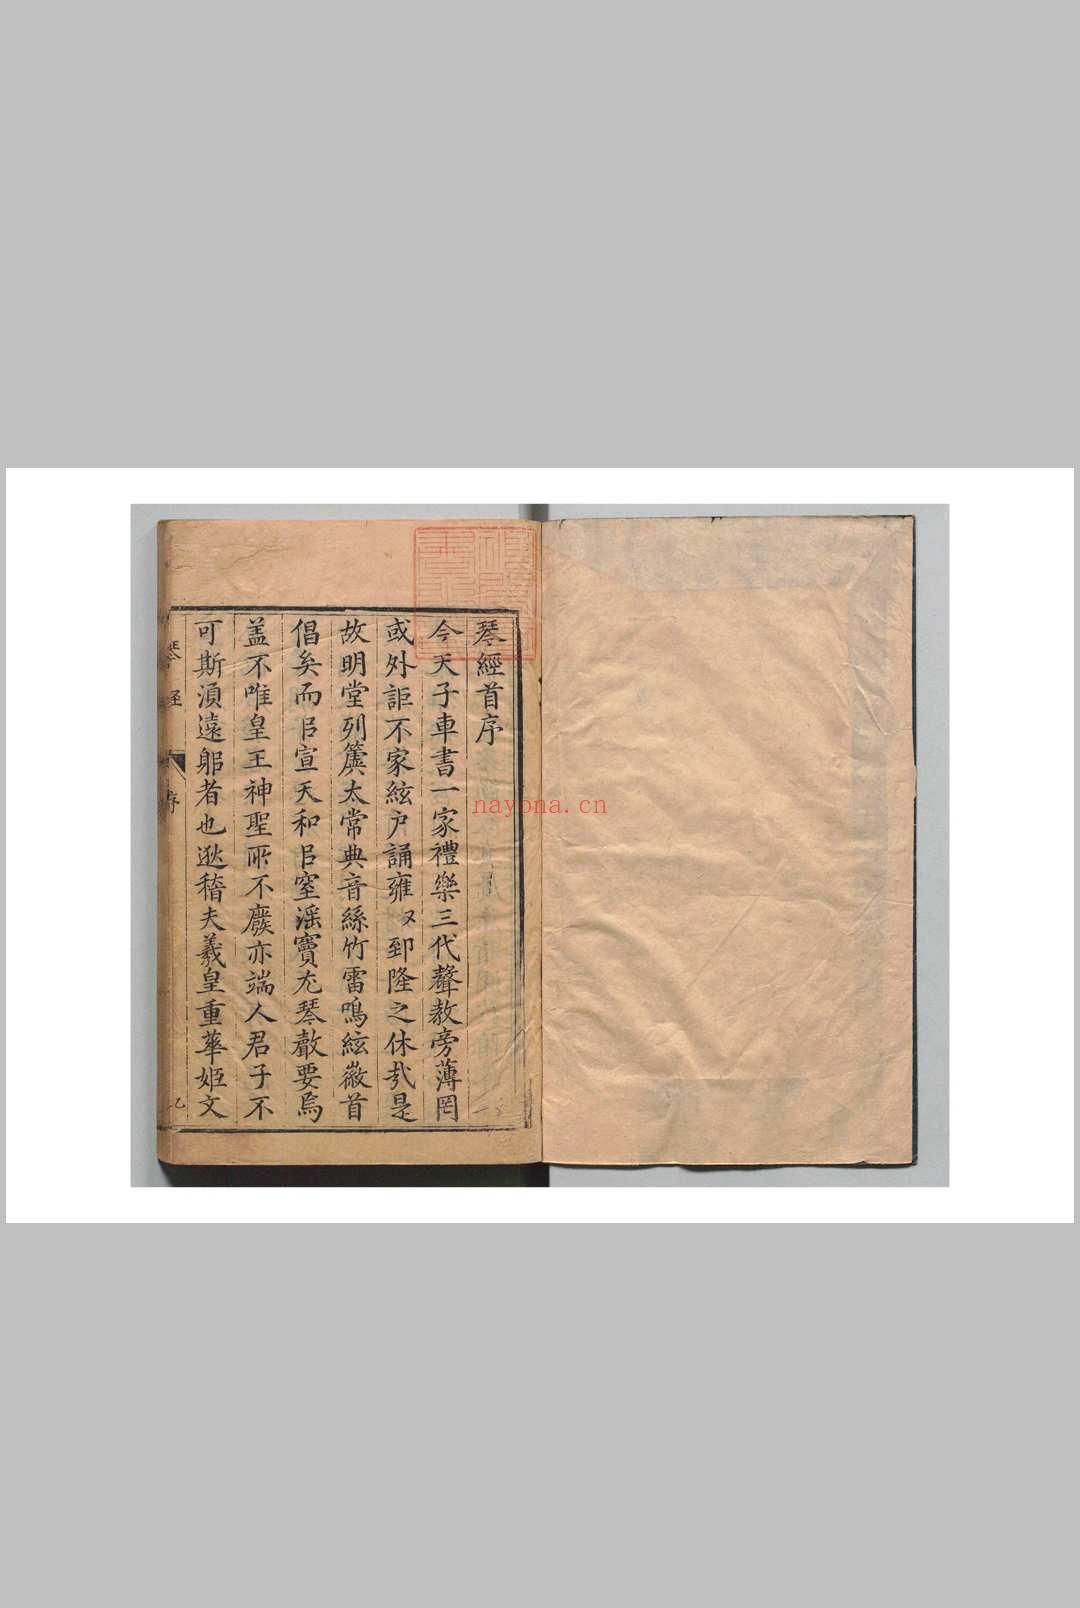 琴經首序
今天子車書一家禮樂三代聲教旁薄罔
或外詎不家絃户誦雍〻郅隆之休㢤是
故明堂列簴太常典音絲竹雷鳴絃徽首
倡矣而㠯宣天和㠯窒滛竇尤琴聲要焉
盖不唯皇王神聖所不廢亦端人君子不
可斯湏遠躳者也逖稽夫羲皇重華姬文
琴經
序
乙
nayona.cn